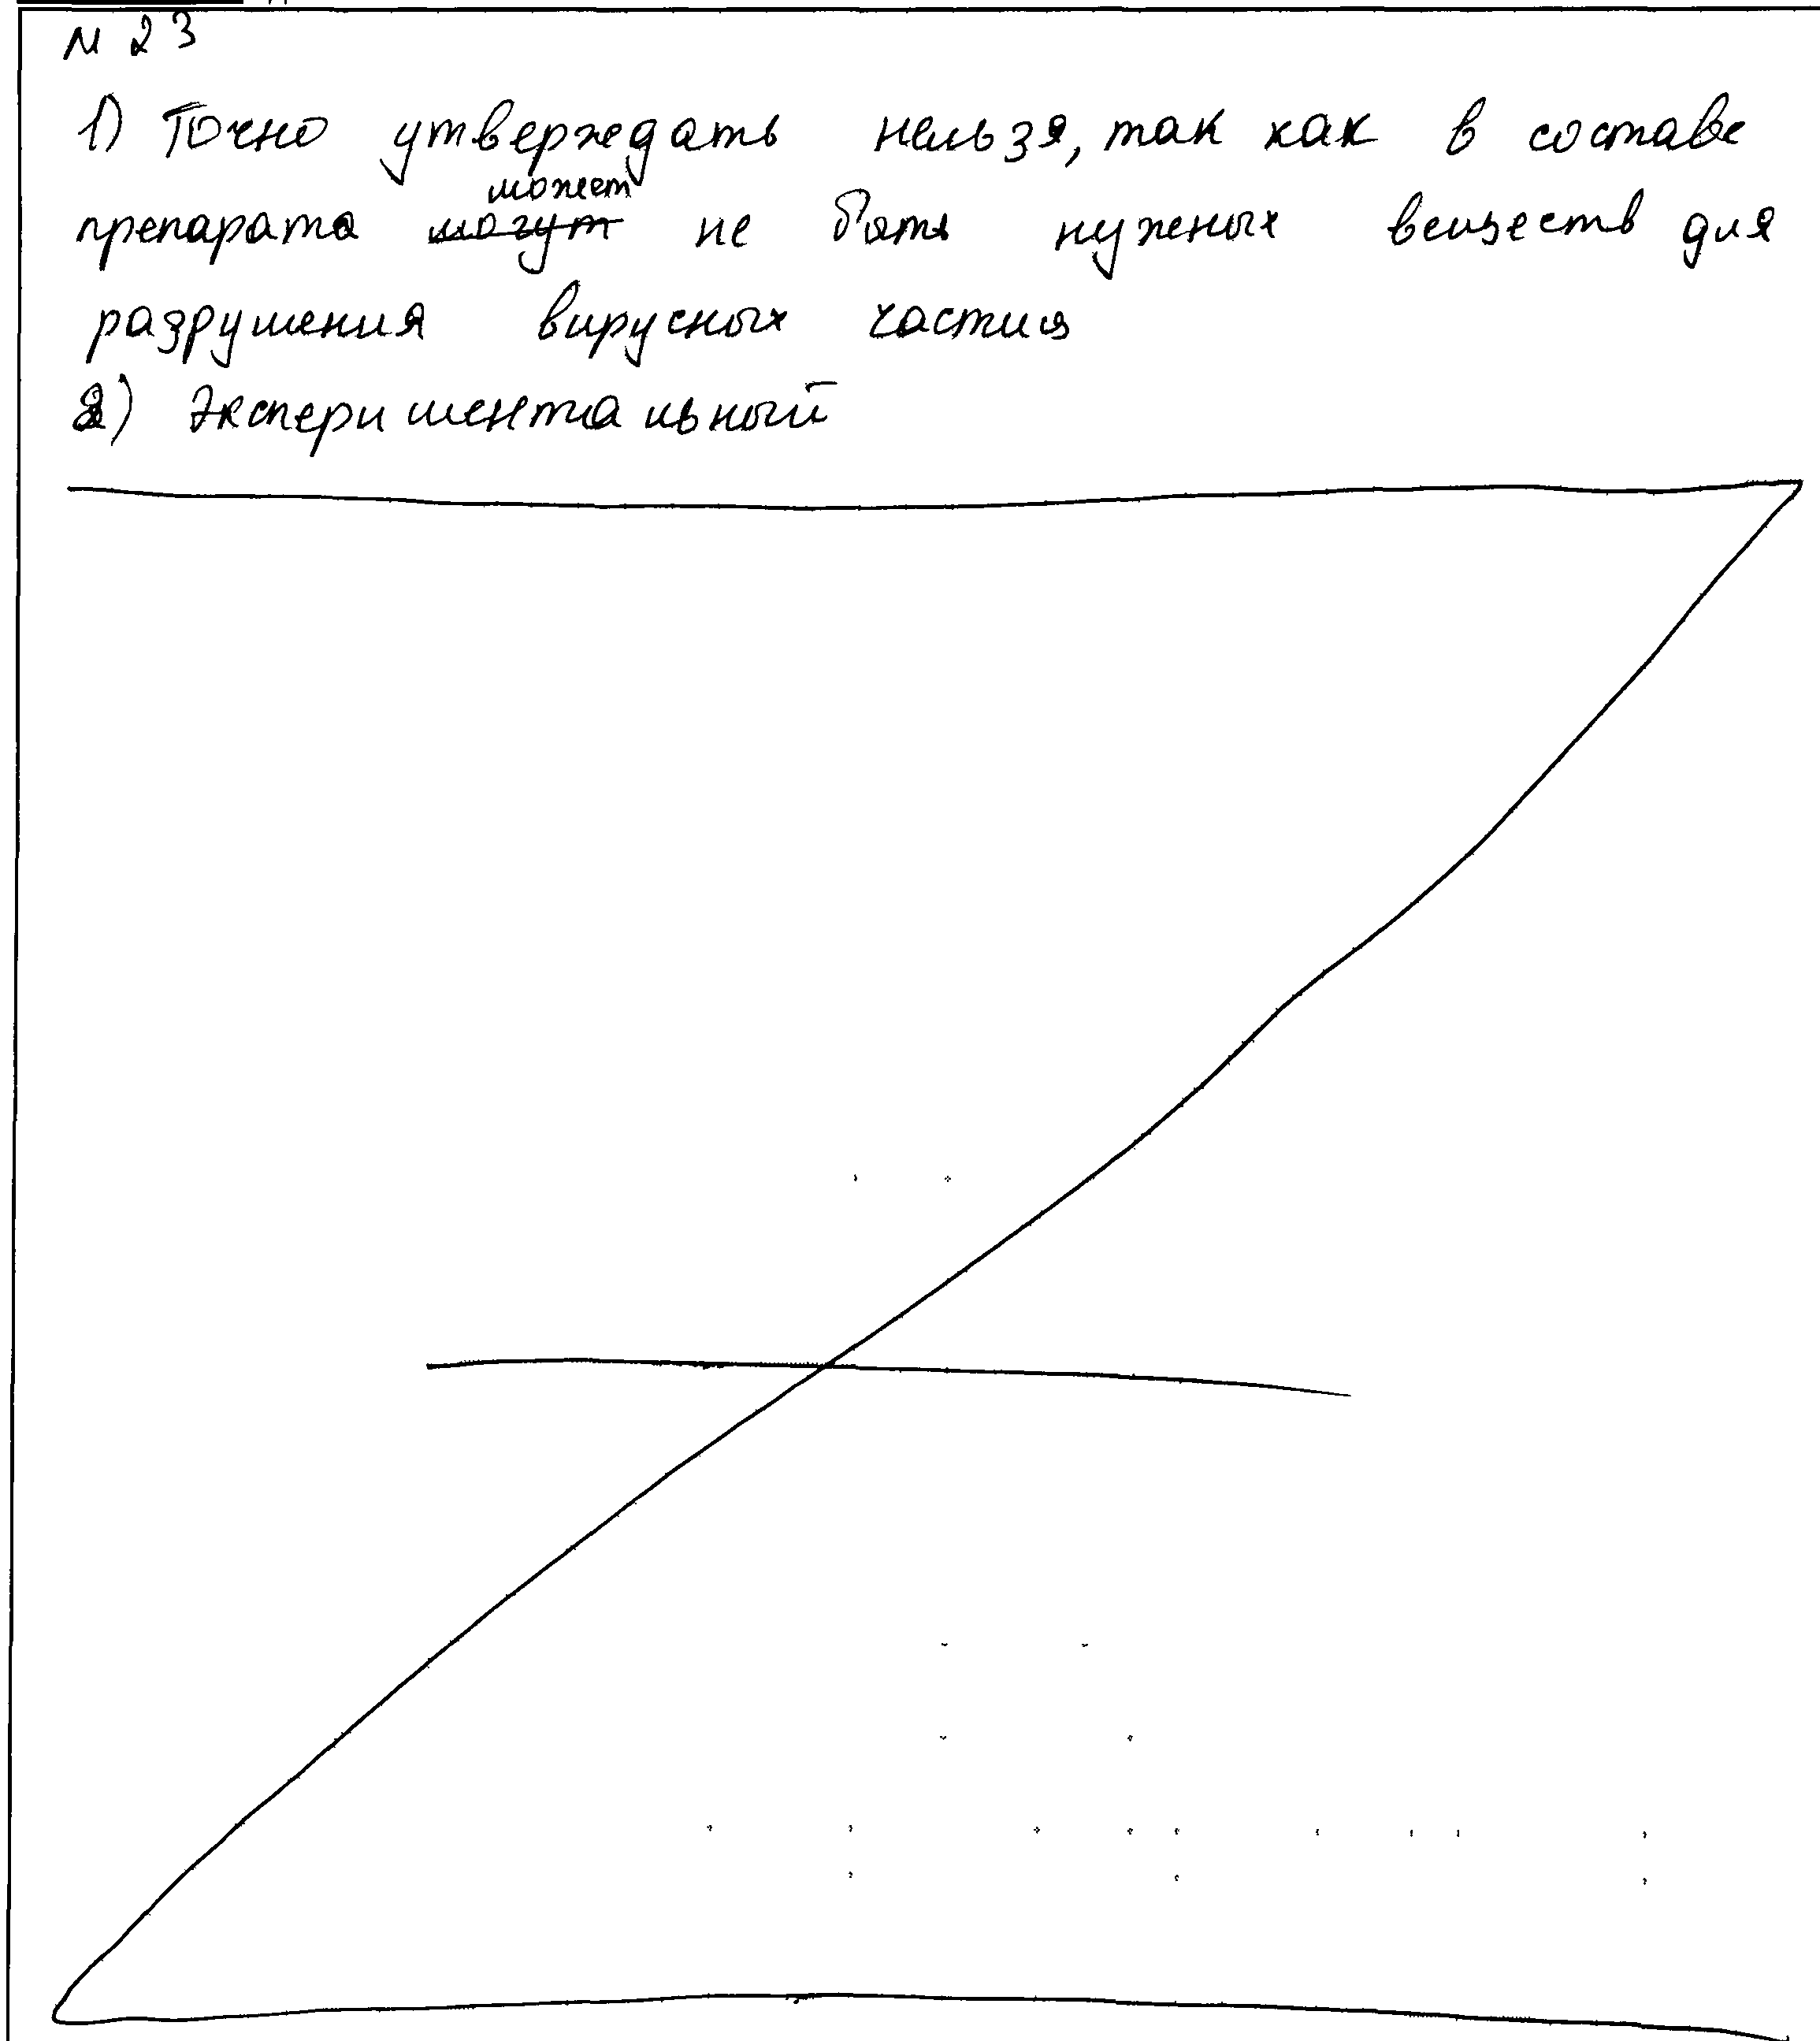 N 23
1) Точно утверждать нельзя, так как в составе
может
препарата могут не быть нужных веществ для
разрушения вирусных частиц
2) Экспериментальный